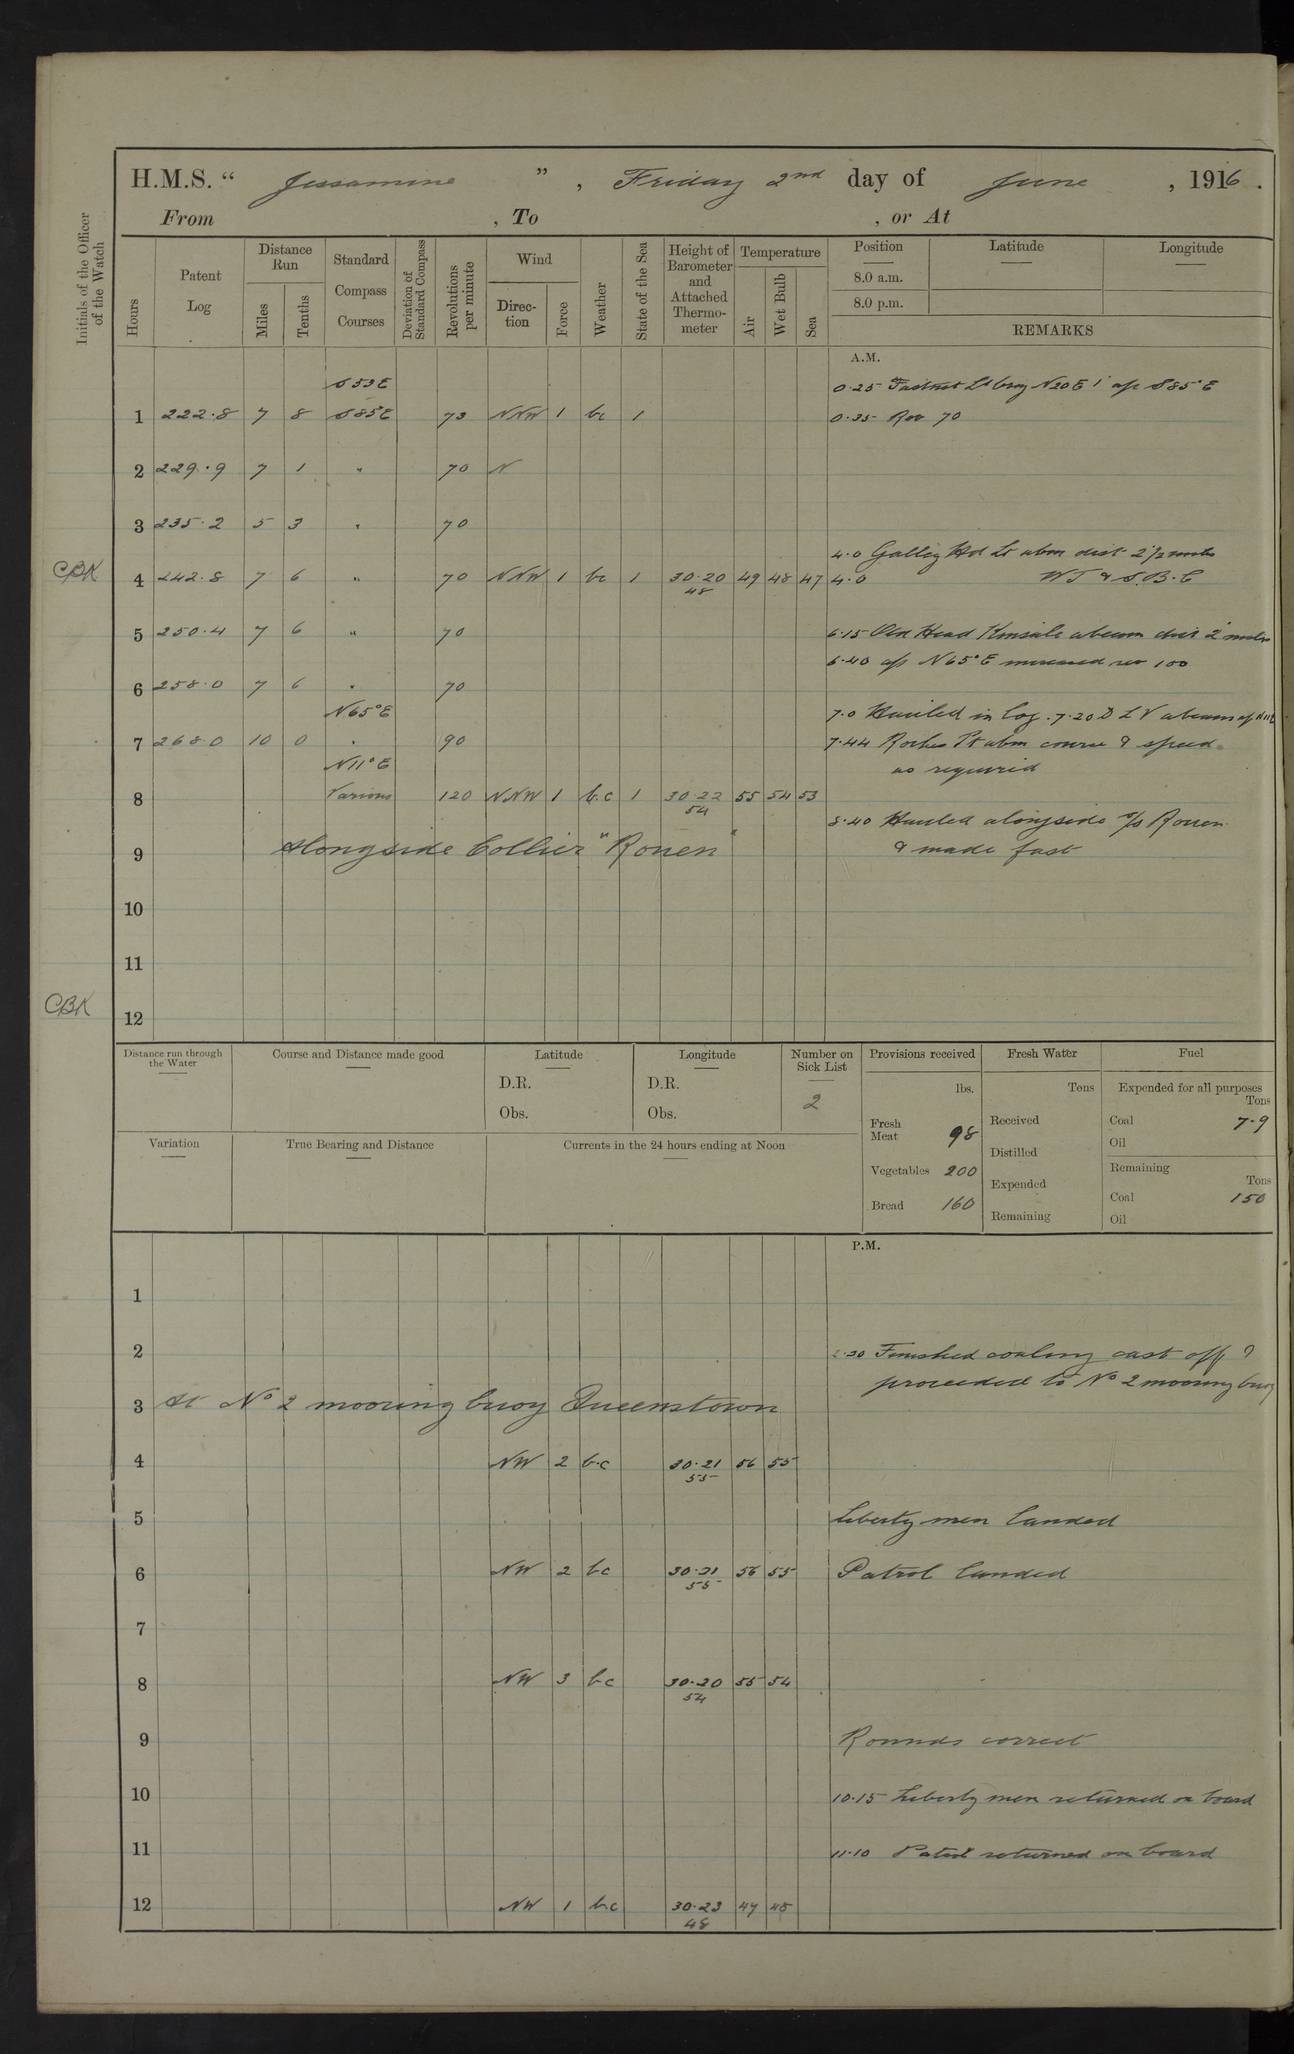 H.M.S. “ Jessamine ” , Friday 2nd day of June , 1916 .
From , To , or At
Initials of the Officer of the Watch
Hours
Patent Log
Distance Run
Miles
Tenths
Standard Compass Courses
Deviation of Standard Compass
Revolutions per minute
Wind
Direction
Force
Weather
State of the Sea
Height of Barometer and Attached Thermometer
Temperature
Air
Wet Bulb
Sea
Position
Latitude
Longitude
8.0 a.m.
8.0 p.m.
REMARKS
A.M.
S53E
0.25 Fastnet Lt brng N20E 1' a/c S85°E
1 222.8 7 8 S85E 73 NNW 1 bc 1 0.35 Rev 70
2 229.9 7 1 " 70 N
3 235.2 5 3 " 70
4.0 Galley Hd Lt abm dist 2 1/2 miles
CBK 4 242.8 7 6 " 70 NNW 1 bc 1 30.20 48 49 48 47 4.0 WT & S.B.C
5 250.4 7 6 " 70 6.15 Old Head Kinsale abeam dist 2 miles
6.40 a/c N65°E increased rev 100
6 258.0 7 6 " 70
N65°E 7.0 Hauled in log. 7.20 D L V abeam a/c N11E
7 268.0 10 0 " 90 7.44 Roches Pt abm course & speed
N11°E as required
8 Various 120 NNW 1 b.c 1 30.22 54 55 54 53
8.40 Hauled alongside s/s Rouen
9 Alongside Collier "Rouen" & made fast
10
11
CBK
12
Distance run through the Water
Course and Distance made good
Latitude
D.R.
Obs.
Longitude
D.R.
Obs.
Number on Sick List
2
Provisions received
lbs.
Fresh Meat 98
Vegetables 200
Bread 160
Fresh Water
Tons
Received
Distilled
Expended
Remaining
Fuel
Expended for all purposes
Tons
Coal 7.9
Oil
Remaining
Tons
Coal 150
Oil
Variation
True Bearing and Distance
Currents in the 24 hours ending at Noon
P.M.
1
2 Finished coaling cast off &
proceeded to No 2 mooring buoy
3 At No 2 mooring buoy Queenstown
4 NW 2 b.c 30.21 55 56 55
5 Liberty men landed
6 NW 2 bc 30.21 55 56 55 Patrol landed
7
8 NW 3 bc 30.20 54 55 54
9 Rounds correct
10 10.15 Liberty men returned on board
11 11.10 Patrol returned on board
12 NW 1 bc 30.23 48 47 45